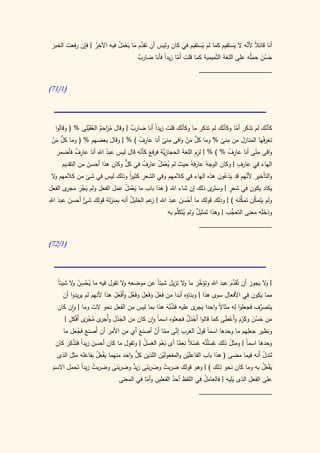 أنا قائلاً لأنّه لا يستقيم كما لم يستقيم في كان وليس أن تقدَّم ما يعْمَلُ فيه الآخِرُ | فإن رفعت الخبرَ
حَسُنَ حملُه على اللغة التَّميمية كما قلت أمّا زيداً فأنا ضاربٌ
(71/1)
كأنك لم تذكر أمّا وكأنّك لم تذكر ما وكأنك قلت زيداً أنا ضاربٌ | وقال مُزاحِمٌ العُقَيْلى % ( وقالُوا
تعرَّفْها المنازلَ من مِنىً % وما كلُّ مَنْ وافى مِنىً أنا عارفُ ) % | وقال بعضهم % ( وما كلُّ مَنْ
وافى مِنَّى أنا عارفُ % ) % | لزِم اللغةَ الحجازيّة فرفع كأنّه قال ليس عبدُ الله أنا عارفُ فأضمر
الهاء في عارف | وكان الوجهُ عارفُه حيث لم يُعْمَلْ عارفٌ في كلُّ وكان هذا أحسن من التقديم
والتأخير لأنّهم قد يدَعون هذه الهاء في كلامهم وفي الشعر كثيراً وذلك ليس في شئ من كلامهم ولا
يكاد يكون في شعر | وسترى ذلك إن شاء الله ( هذا باب ما يَعْمَلُ عَمَلَ الفعل ولم يَجْرِ مجرى الفعل
ولم يتمكّن تمكُّنَه ) | وذلك قولك ما أحْسَنَ عبدَ الله | زعم الخليلُ أنه بمنزلة قولك شئٌ أحسنَ عبدَ اللهِ
ودخَله معنى التعجّب | وهذا تمثيلٌ ولم يُتكلَّم به
(72/1)
| ولا يجوز أن تُقَدِّم عبدَ الله وتؤخِّر ما ولا تزيلَ شيئاً عن موضعه ولا تقول فيه ما يُحْسِنُ ولا شيئاً
مما يكون في الأفعال سوى هذا | وبناؤه أبدا من فَعَلَ وفَعِلَ وفَعُلَ وأَفْعَلَ هذا لأنهم لم يريدوا أن
يتصرّف فجعلوا له مثالاً واحدا يَجرى عليه فشُبَّهَ هذا بما ليس من الفعل نحو لات وما | وإن كان
من حَسُنَ وكَرُمَ وأعْطى كما قالوا أجْدلٌ فجعلوه اسماً وإن كان من الجَدْلِ وأُجرِى مُجْرَى أَفْكَلٍ |
ونظير جعلِهم ما وحدَها اسماً قولُ العرب إنّى ممّا أنْ أصنعَ أي من الأمر أن أصنَعَ فجُعل ما
وحدَها اسماً | ومثلُ ذلك غسَلْتُه غَسْلاً نِعِمّا أى نِعْمَ الغسْلُ | وتقول ما كان أحسنَ زيداً فتَذْكر كان
لتدلّ أنه فيما مضى ( هذا باب الفاعلَيْن والمفعولَيْن اللذين كلُّ واحد منهما يَفْعَلُ بفاعله مثل الذى
يَفْعَلُ به وما كان نحو ذلك ) | وهو قولك ضربتُ وضربَنى زيدٌ وضربنى وضربتُ زيداً تَحمل الاسمَ
على الفعل الذى يليه | فالعاملُ في اللفظ أحدُ الفعلين وأمّا في المعنى